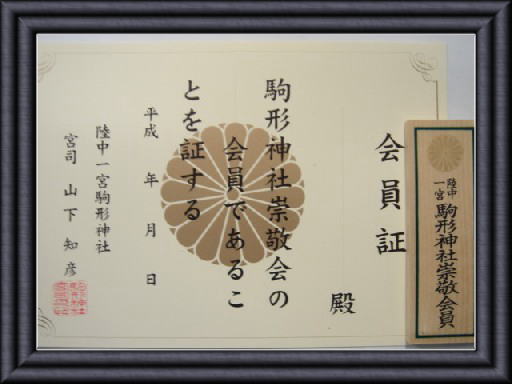 会員証
殿
駒形神社崇敬会の
会員であるこ
とを証する
平成 年 月 日
陸中一宮駒形神社
宮司 山下知彦
陸中
一宮
駒形神社崇敬会員